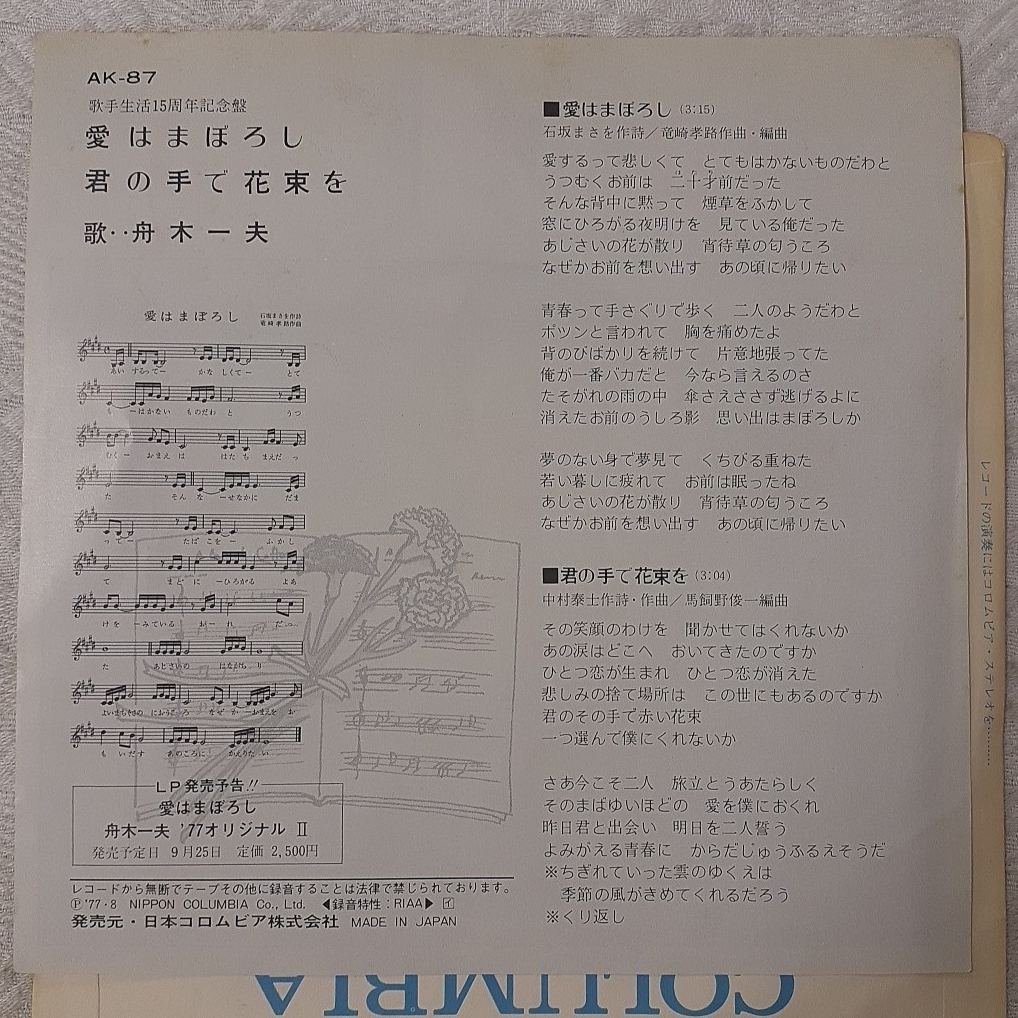 AK-87
歌手生活15周年記念盤
愛はまぼろし
君の手で花束を
歌‥舟木一夫
愛はまぼろし
石坂まさを作詩
竜崎孝路作曲
LP発売予告!!
愛はまぼろし
舟木一夫 '77オリジナル Ⅱ
発売予定日 9月25日 定価 2,500円
レコードから無断でテープその他に録音することは法律で禁じられております。
Ⓟ'77・8 NIPPON COLUMBIA Co., Ltd. ◀録音特性：RIAA▶ イ
発売元・日本コロムビア株式会社 MADE IN JAPAN
■愛はまぼろし (3:15)
石坂まさを作詩／竜崎孝路作曲・編曲
愛するって悲しくて とてもはかないものだわと
うつむくお前は 二十才前だった
そんな背中に黙って 煙草をふかして
窓にひろがる夜明けを 見ている俺だった
あじさいの花が散り 宵待草の匂うころ
なぜかお前を想い出す あの頃に帰りたい
青春って手さぐりで歩く 二人のようだわと
ポツンと言われて 胸を痛めたよ
背のびばかりを続けて 片意地張ってた
俺が一番バカだと 今なら言えるのさ
たそがれの雨の中 傘さえささず逃げるよに
消えたお前のうしろ影 思い出はまぼろしか
夢のない身で夢見て くちびる重ねた
若い暮しに疲れて お前は眠ったね
あじさいの花が散り 宵待草の匂うころ
なぜかお前を想い出す あの頃に帰りたい
■君の手で花束を (3:04)
中村泰士作詩・作曲／馬飼野俊一編曲
その笑顔のわけを 聞かせてはくれないか
あの涙はどこへ おいてきたのですか
ひとつ恋が生まれ ひとつ恋が消えた
悲しみの捨て場所は この世にもあるのですか
君のその手で赤い花束
一つ選んで僕にくれないか
さあ今こそ二人 旅立とうあたらしく
そのまばゆいほどの 愛を僕におくれ
昨日君と出会い 明日を二人誓う
よみがえる青春に からだじゅうふるえそうだ
※ちぎれていった雲のゆくえは
季節の風がきめてくれるだろう
※くり返し
レコードの演奏にはコロムビア・ステレオを………
COLUMBIA